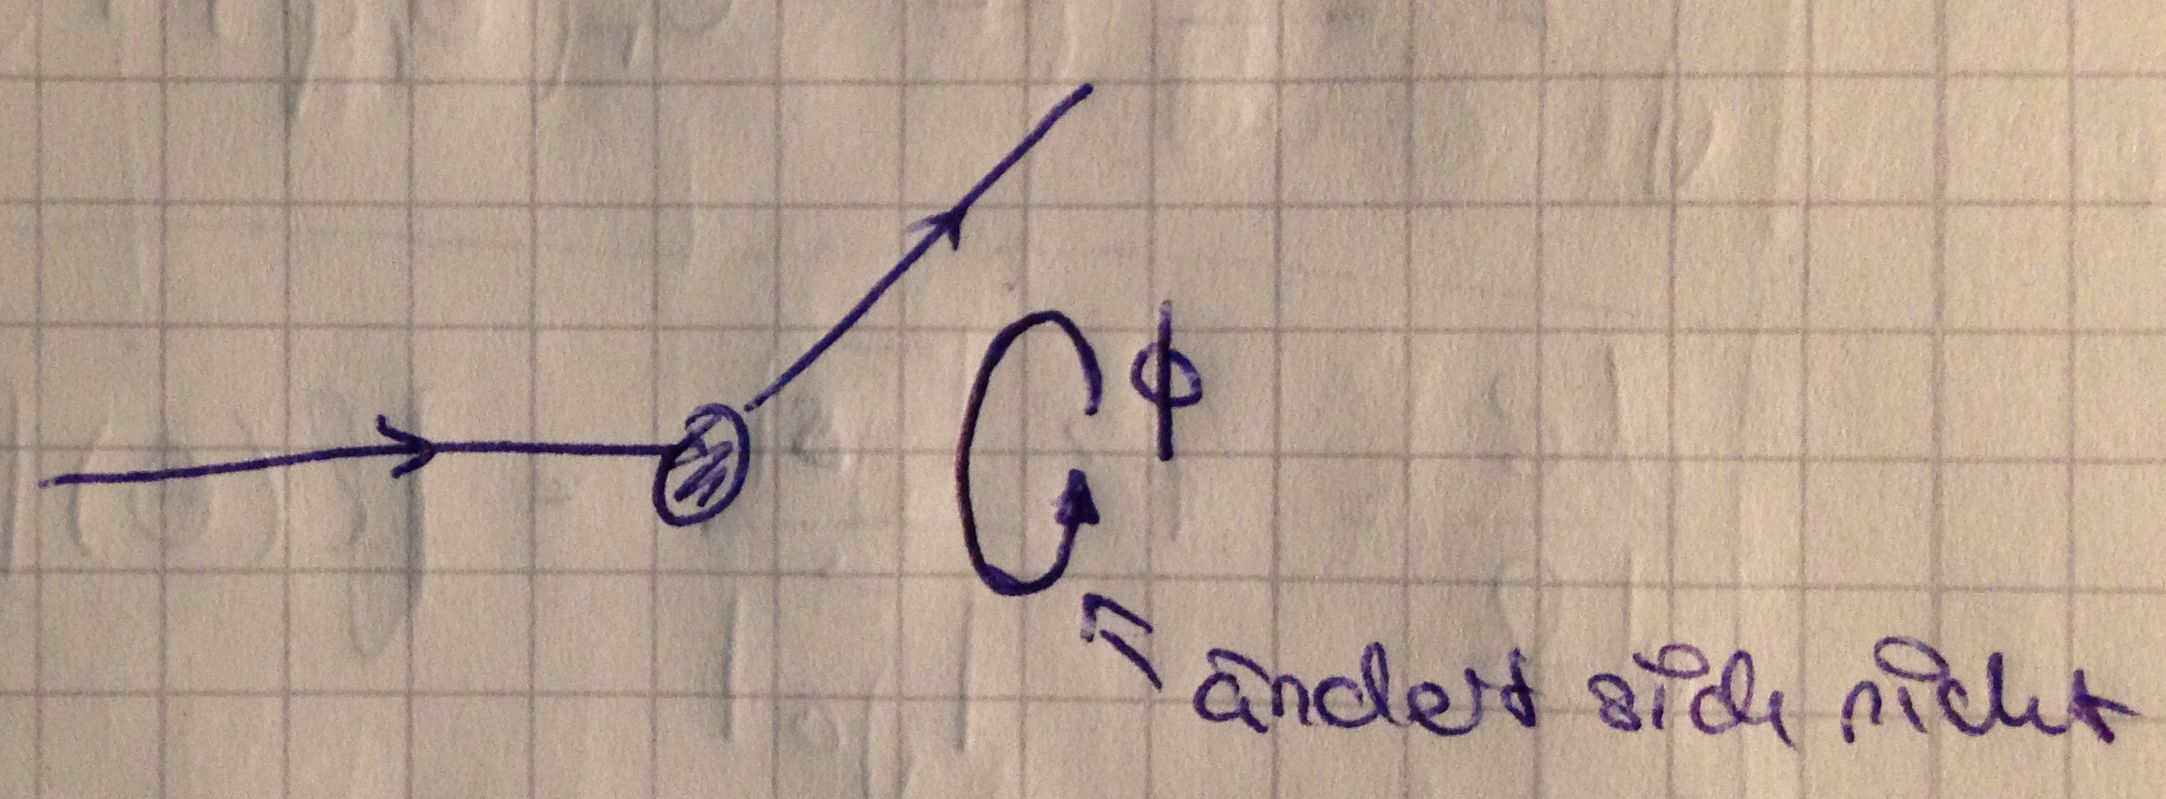 ϕ
ändert sich nicht